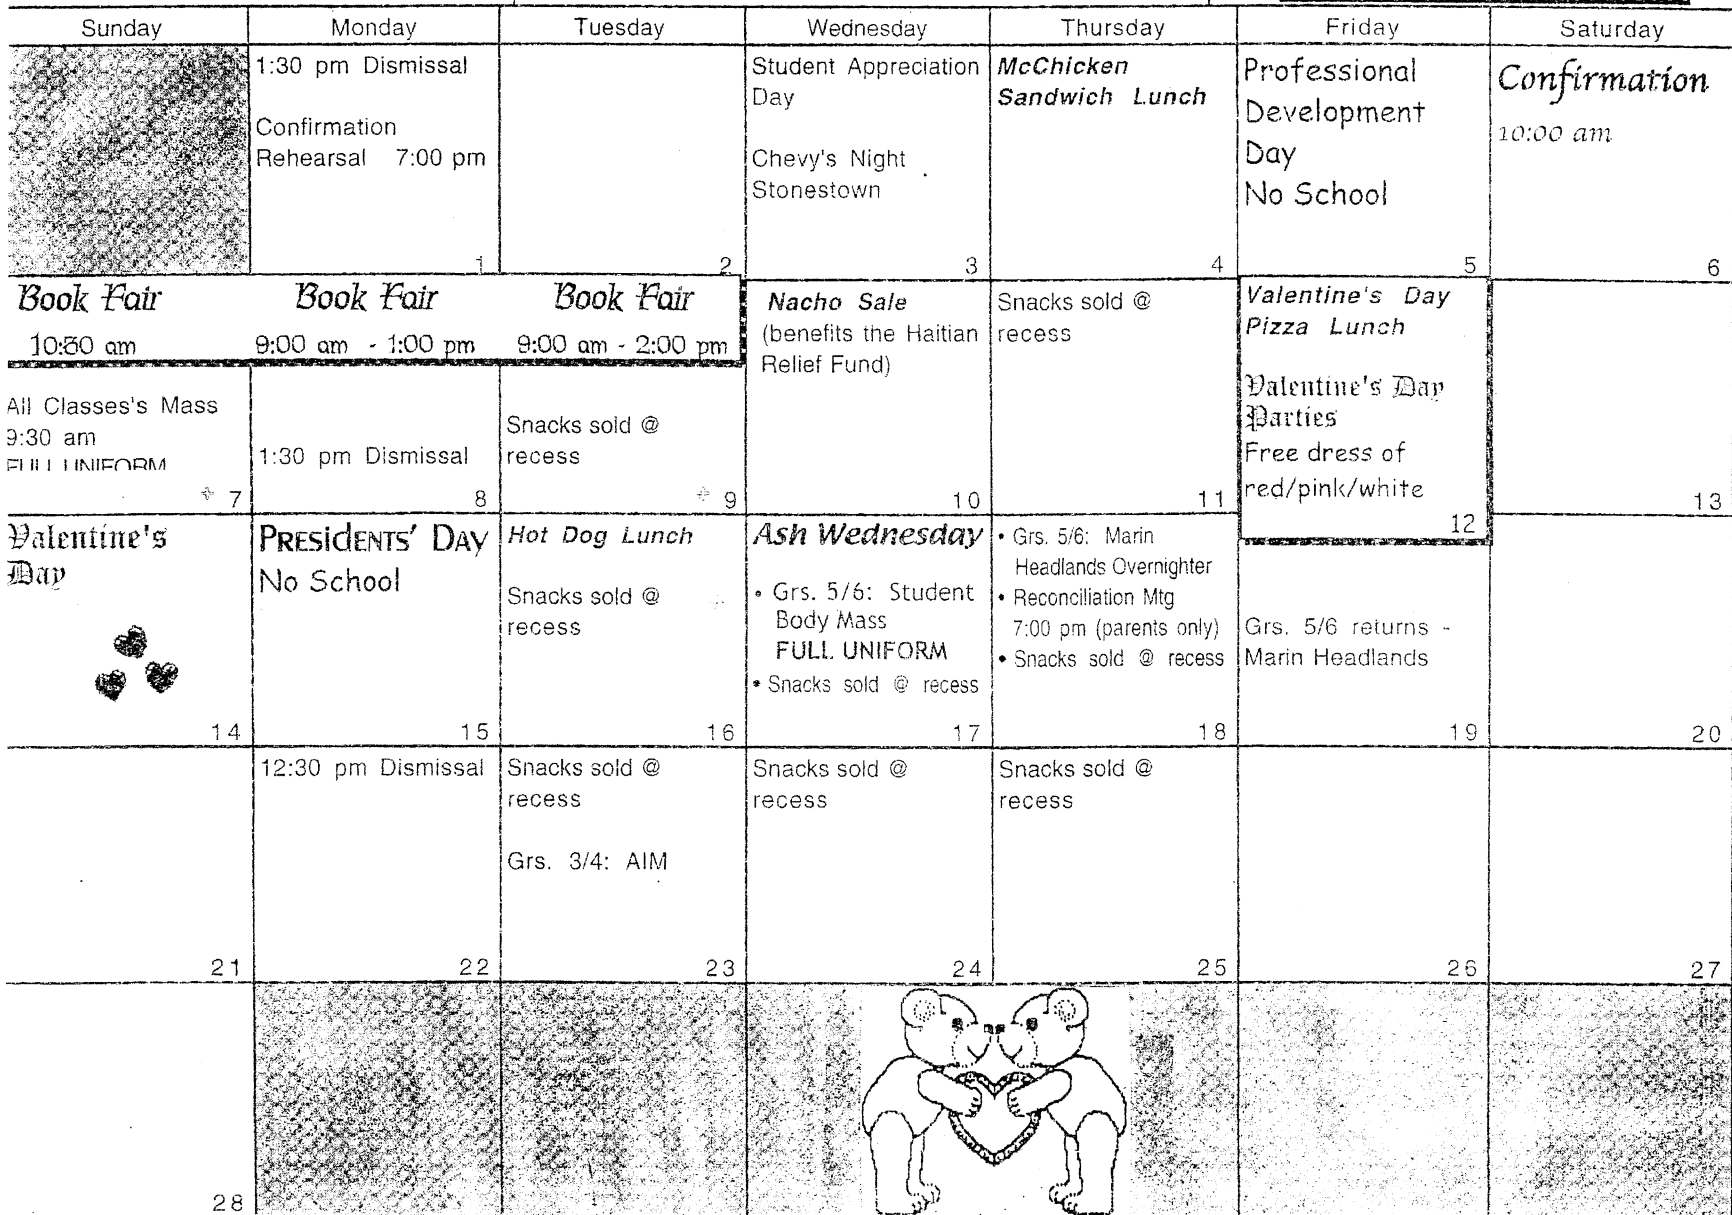 Sunday Monday Tuesday Wednesday Thursday Friday Saturday
1:30 pm Dismissal
Confirmation
Rehearsal 7:00 pm
1
2
Student Appreciation
Day
Chevy's Night
Stonestown
3
McChicken
Sandwich Lunch
4
Professional
Development
Day
No School
5
Confirmation
10:00 am
6
Book Fair
10:30 am
All Classes's Mass
9:30 am
FULL UNIFORM
7
Book Fair
9:00 am - 1:00 pm
1:30 pm Dismissal
8
Book Fair
9:00 am - 2:00 pm
Snacks sold @
recess
9
Nacho Sale
(benefits the Haitian
Relief Fund)
10
Snacks sold @
recess
11
Valentine's Day
Pizza Lunch
Valentine's Day
Parties
Free dress of
red/pink/white
12
13
Valentine's
Day
14
PRESIDENTS' DAY
No School
15
Hot Dog Lunch
Snacks sold @
recess
16
Ash Wednesday
• Grs. 5/6: Student
Body Mass
FULL UNIFORM
• Snacks sold @ recess
17
• Grs. 5/6: Marin
Headlands Overnighter
• Reconciliation Mtg
7:00 pm (parents only)
• Snacks sold @ recess
18
Grs. 5/6 returns -
Marin Headlands
19
20
21
12:30 pm Dismissal
22
Snacks sold @
recess
Grs. 3/4: AIM
23
Snacks sold @
recess
24
Snacks sold @
recess
25
26
27
28